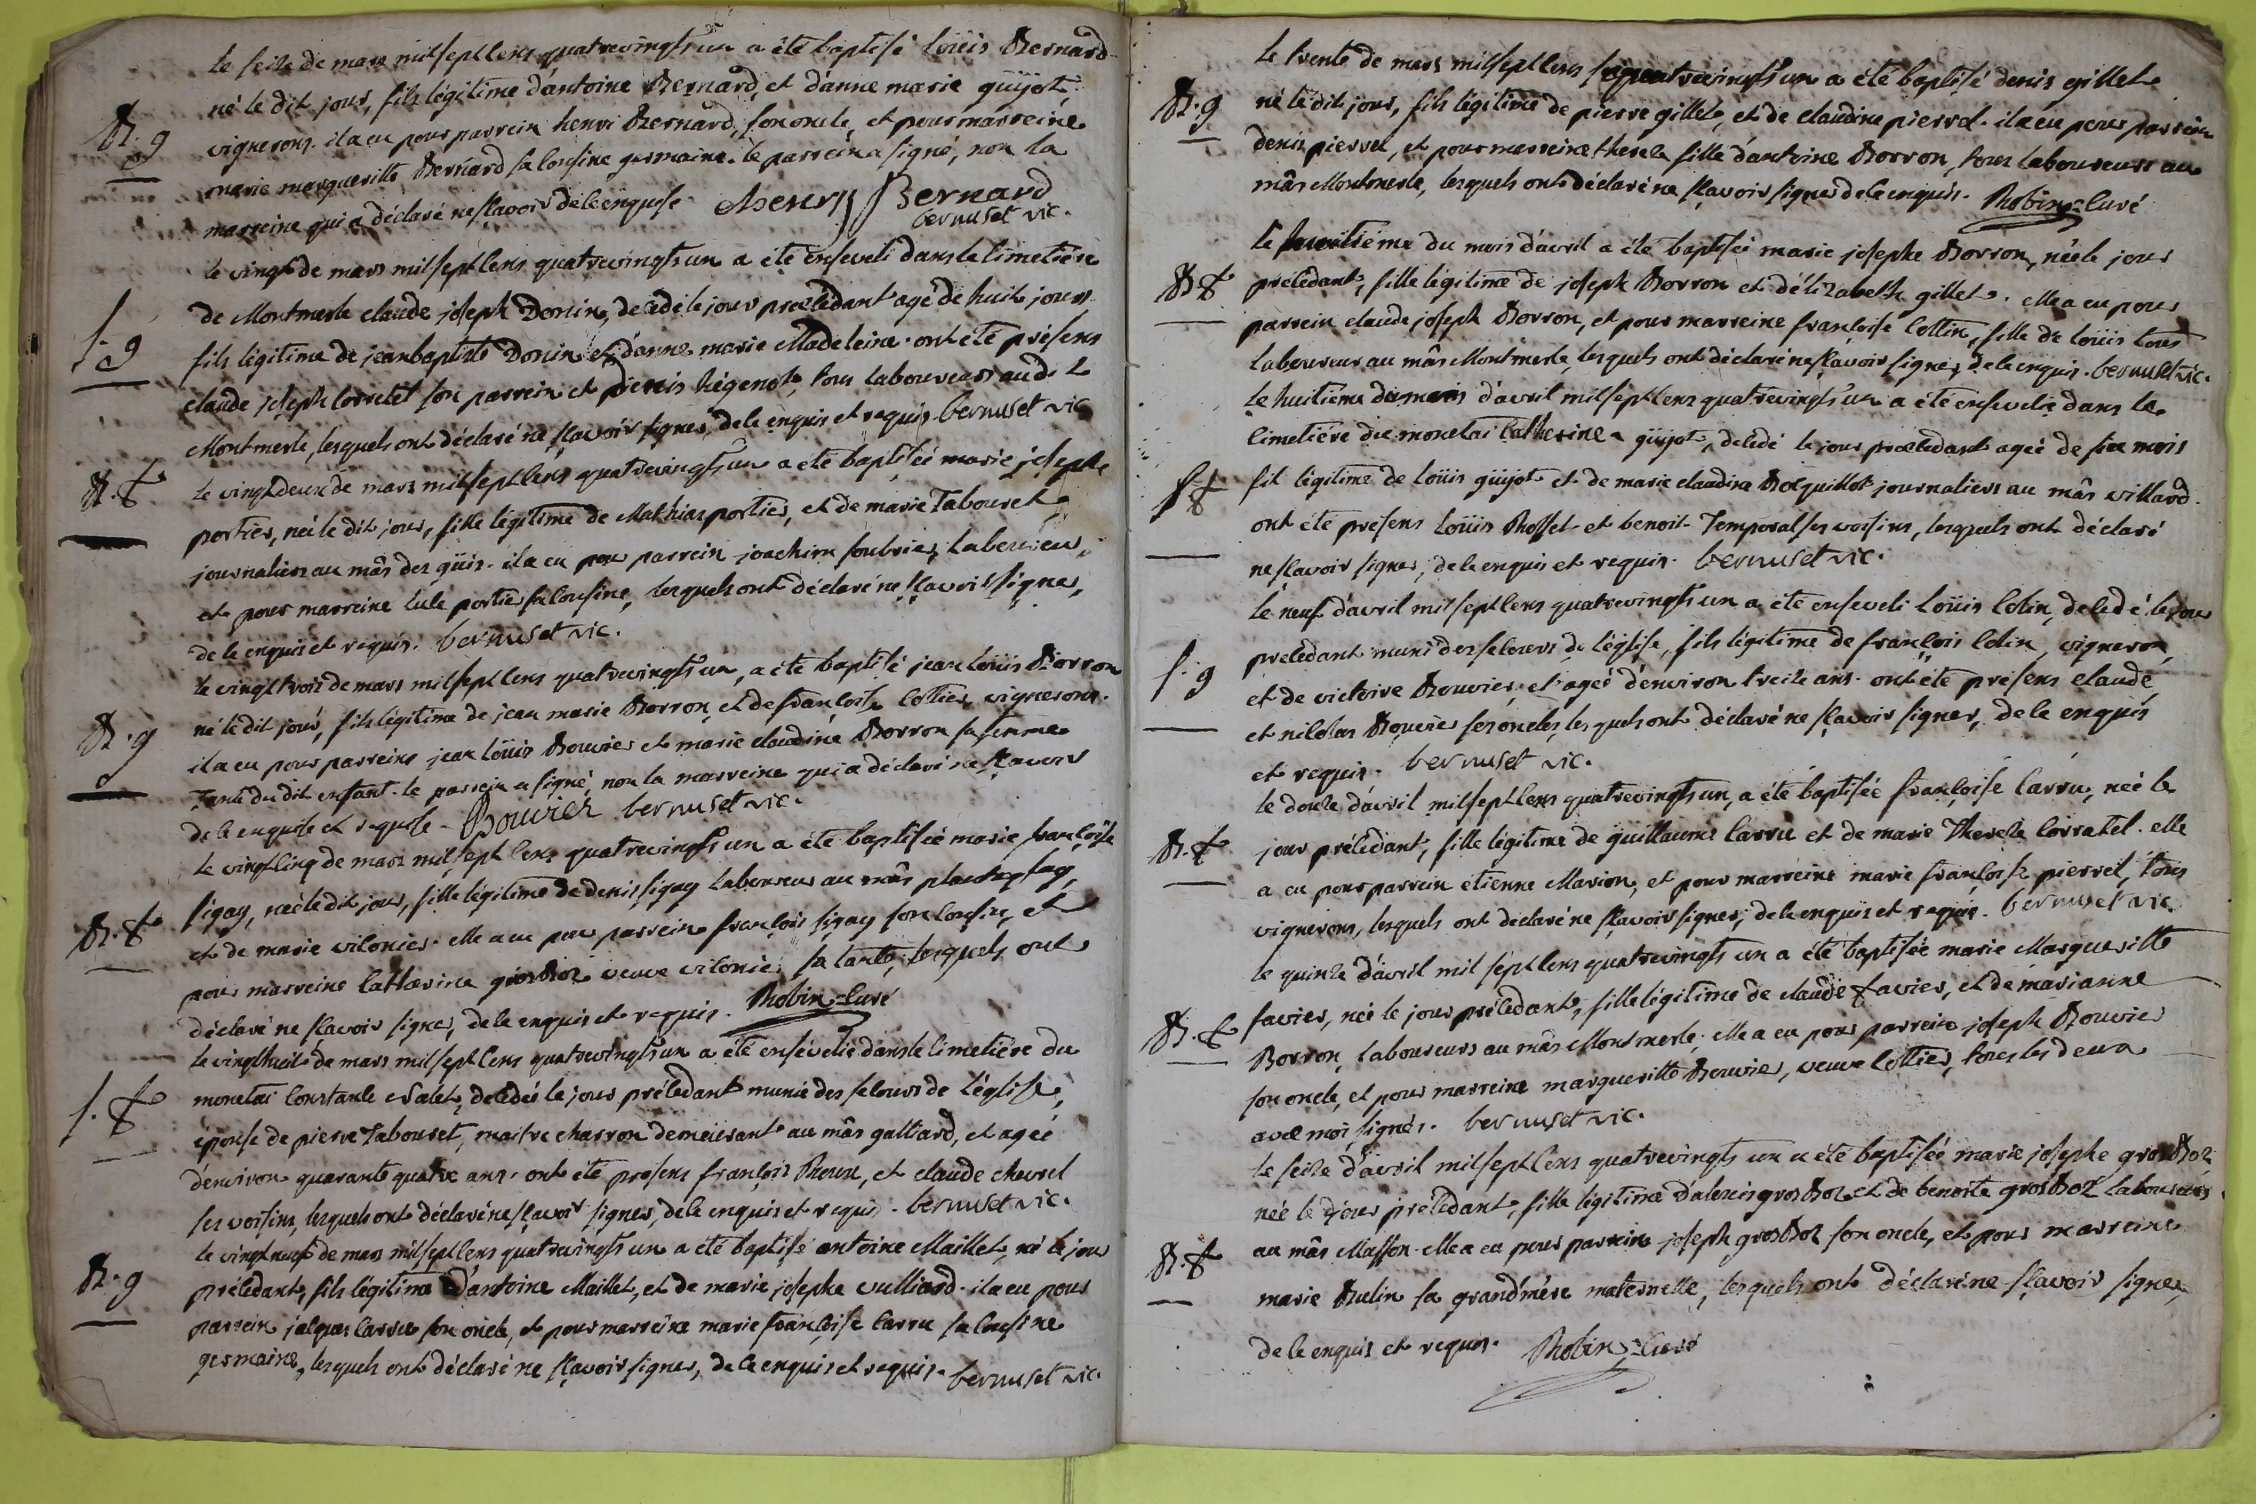 le seize de mars mil sept cens quatrevingts un a été baptisé Loüis Bernard
B. g né le dit jour, fils légitime d'antoine Bernard, et d'anne marie guijot,
vignerons. il a eu pour parrein henri Bernard, son oncle, et pour marreine
marie margueritte Bernard sa cousine germaine. le parrein a signé, non la
marreine qui a déclaré ne sçavoir de ce enquise. Henry Bernard
bernuset vic.
le vingt de mars mil sept cens quatrevingts un a été enseveli dans le cimetiére
de Montmerle claude joseph Donin, decédé le jour précedant agé de huit jours
S. g fils légitime de jean baptiste Donin et d'anne marie Madeleine. ont été présens
claude joseph Corratet son parrein et denis hégenot, tous laboureurs aud. t
Montmerle, lesquels ont déclaré ne sçavoir signer, de ce enquis et requis. bernuset vic
B. f le vingt deux de mars mil sept cens quatrevingts un a été baptiseé marie josephe
portier, neé le dit jour, fille légitime de Mathias portier, et de marie Tabouret
journaliers au mâs des guis. il a eu pour parrein joachim soubrier, laboureur,
et pour marreine Luce portier sa cousine, lesquels ont déclaré ne sçavoir signer,
de ce enquis et requis. bernuset vic.
le vingt trois de mars mil sept cens quatrevingts un, a été baptisé jean Loüis Borron
B. g né le dit jour, fils légitime de jean marie Borron, et de françoise Cottier, vignerons.
il a eu pour parreins jean Loüis Bouvier et marie claudine Borron sa femme
Tante du dit enfant. le parrein a signé, non la marreine qui a déclaré ne sçavoir
de ce enquise et requise. Bouvier bernuset vic.
le vingt cinq de mars mil sept cens quatrevingts un a été baptiseé marie françoise
B. f sigay, neé le dit jour, fille légitime de denis sigay laboureur au mâs
et de marie vilonier. elle a eu pour parrein françois sigay son cousin, et
pour marreine Catherine grosboz veuve vilonier sa tante, lesquels ont
déclaré ne sçavoir signer, de ce enquis et requis. Robin curé
le vingthuit de mars mil sept cens quatrevingts un a été ensévelie dans le cimetiére du
S. f monetai Constance Salet, decédeé le jour précedant munie des secours de l'église,
épouse de pierre Tabouret, maitre charron demeurant au mâs galliard, et ageé
d'environ quarante quatre ans. ont été présens françois Roux, et claude chevrel
ses voisins, lesquels ont déclaré ne sçavoir signer, de ce enquis et requis. bernuset vic.
le vingt neuf de mars mil sept cens quatrevingts un a été baptisé antoine Maillet, né le jour
B. g précedant, fils légitime d'antoine Maillet, et de marie josephe vulliard. il a eu pour
parrein jacques carru son oncle, et pour marreine marie françoise carru sa cousine
germaine, lesquels ont déclaré ne sçavoir signer, de ce enquis et requis. bernuset vic.
le trente de mars mil sept cens quatrevingts un a été baptisé denis gillet
B. g né le dit jour, fils légitime de pierre gillet, et de claudine pierret. il a eu pour parrein
denis pierret, et pour marreine therese fille d'antoine Borron, tous laboureurs au
mâs Montmerle, lesquels ont déclaré ne sçavoir signer de ce enquis. Robin curé
le huitiéme du mois d'avril a été baptiseé marie josephe Borron, neé le jour
B. f précedant, fille légitime de joseph Borron et d'élizabeth gillet. elle a eu pour
parrein claude joseph Borron, et pour marreine françoise Cottin, fille de Loüis tous
laboureurs au mâs Montmerle, lesquels ont déclaré ne sçavoir signer, de ce enquis. bernuset vic.
le huitiéme du mois d'avril mil sept cens quatrevingts un a été ensevelie dans le
cimetiére du monetai Catherine guijot, decédé le jour précedant ageé de six mois
S. f fil légitime de Loüis guijot et de marie claudine Boequillot journaliers au mâs villard.
ont été présens Loüis Rosset et benoit Temporal ses voisins, lesquels ont déclaré
ne sçavoir signer, de ce enquis et requis. bernuset vic.
le neuf d'avril mil sept cens quatrevingts un a été enseveli Loüis Colin, decedé le jour
S. g précedant muni des secours de l'église, fils légitime de françois Colin, vigneron,
et de victoire Bouvier, et agé d'environ treize ans. ont été présens claude
et nicolas Bouvier ses oncles, lesquels ont déclaré ne sçavoir signer, de ce enquis
et requis. bernuset vic.
le douze d'avril mil sept cens quatrevingts un, a été baptisée françoise Carru, neé le
B. f jour précedant, fille légitime de guillaume Carru et de marie Therese Corratet. elle
a eu pour parrein etienne Marion, et pour marreine marie françoise pierret, tous
vignerons, lesquels ont déclaré ne sçavoir signer, de ce enquis et requis. bernuset vic.
le quinze d'avril mil sept cens quatrevingts un a été baptisée marie Margueritte
B. f favier, neé le jour précedant, fille légitime de claude favier, et de marianne
Borron, laboureurs au mâs Montmerle. elle a eu pour parrein joseph Bouvier
son oncle, et pour marreine margueritte Bouvier, veuve Cottier, tous les deux
avec moi signés. bernuset vic.
le seize d'avril mil sept cens quatrevingts un a été baptisée marie josephe grosboz
neé le jour précedant, fille légitime d'alexis grosboz et de benoite grosboz laboureurs
B. f au mâs Masson. elle a eu pour parrein joseph grosboz son oncle, et pour marreine
marie Bulin sa grand'mére maternelle, lesquels ont déclaré ne sçavoir signer,
de ce enquis et requis. Robin curé